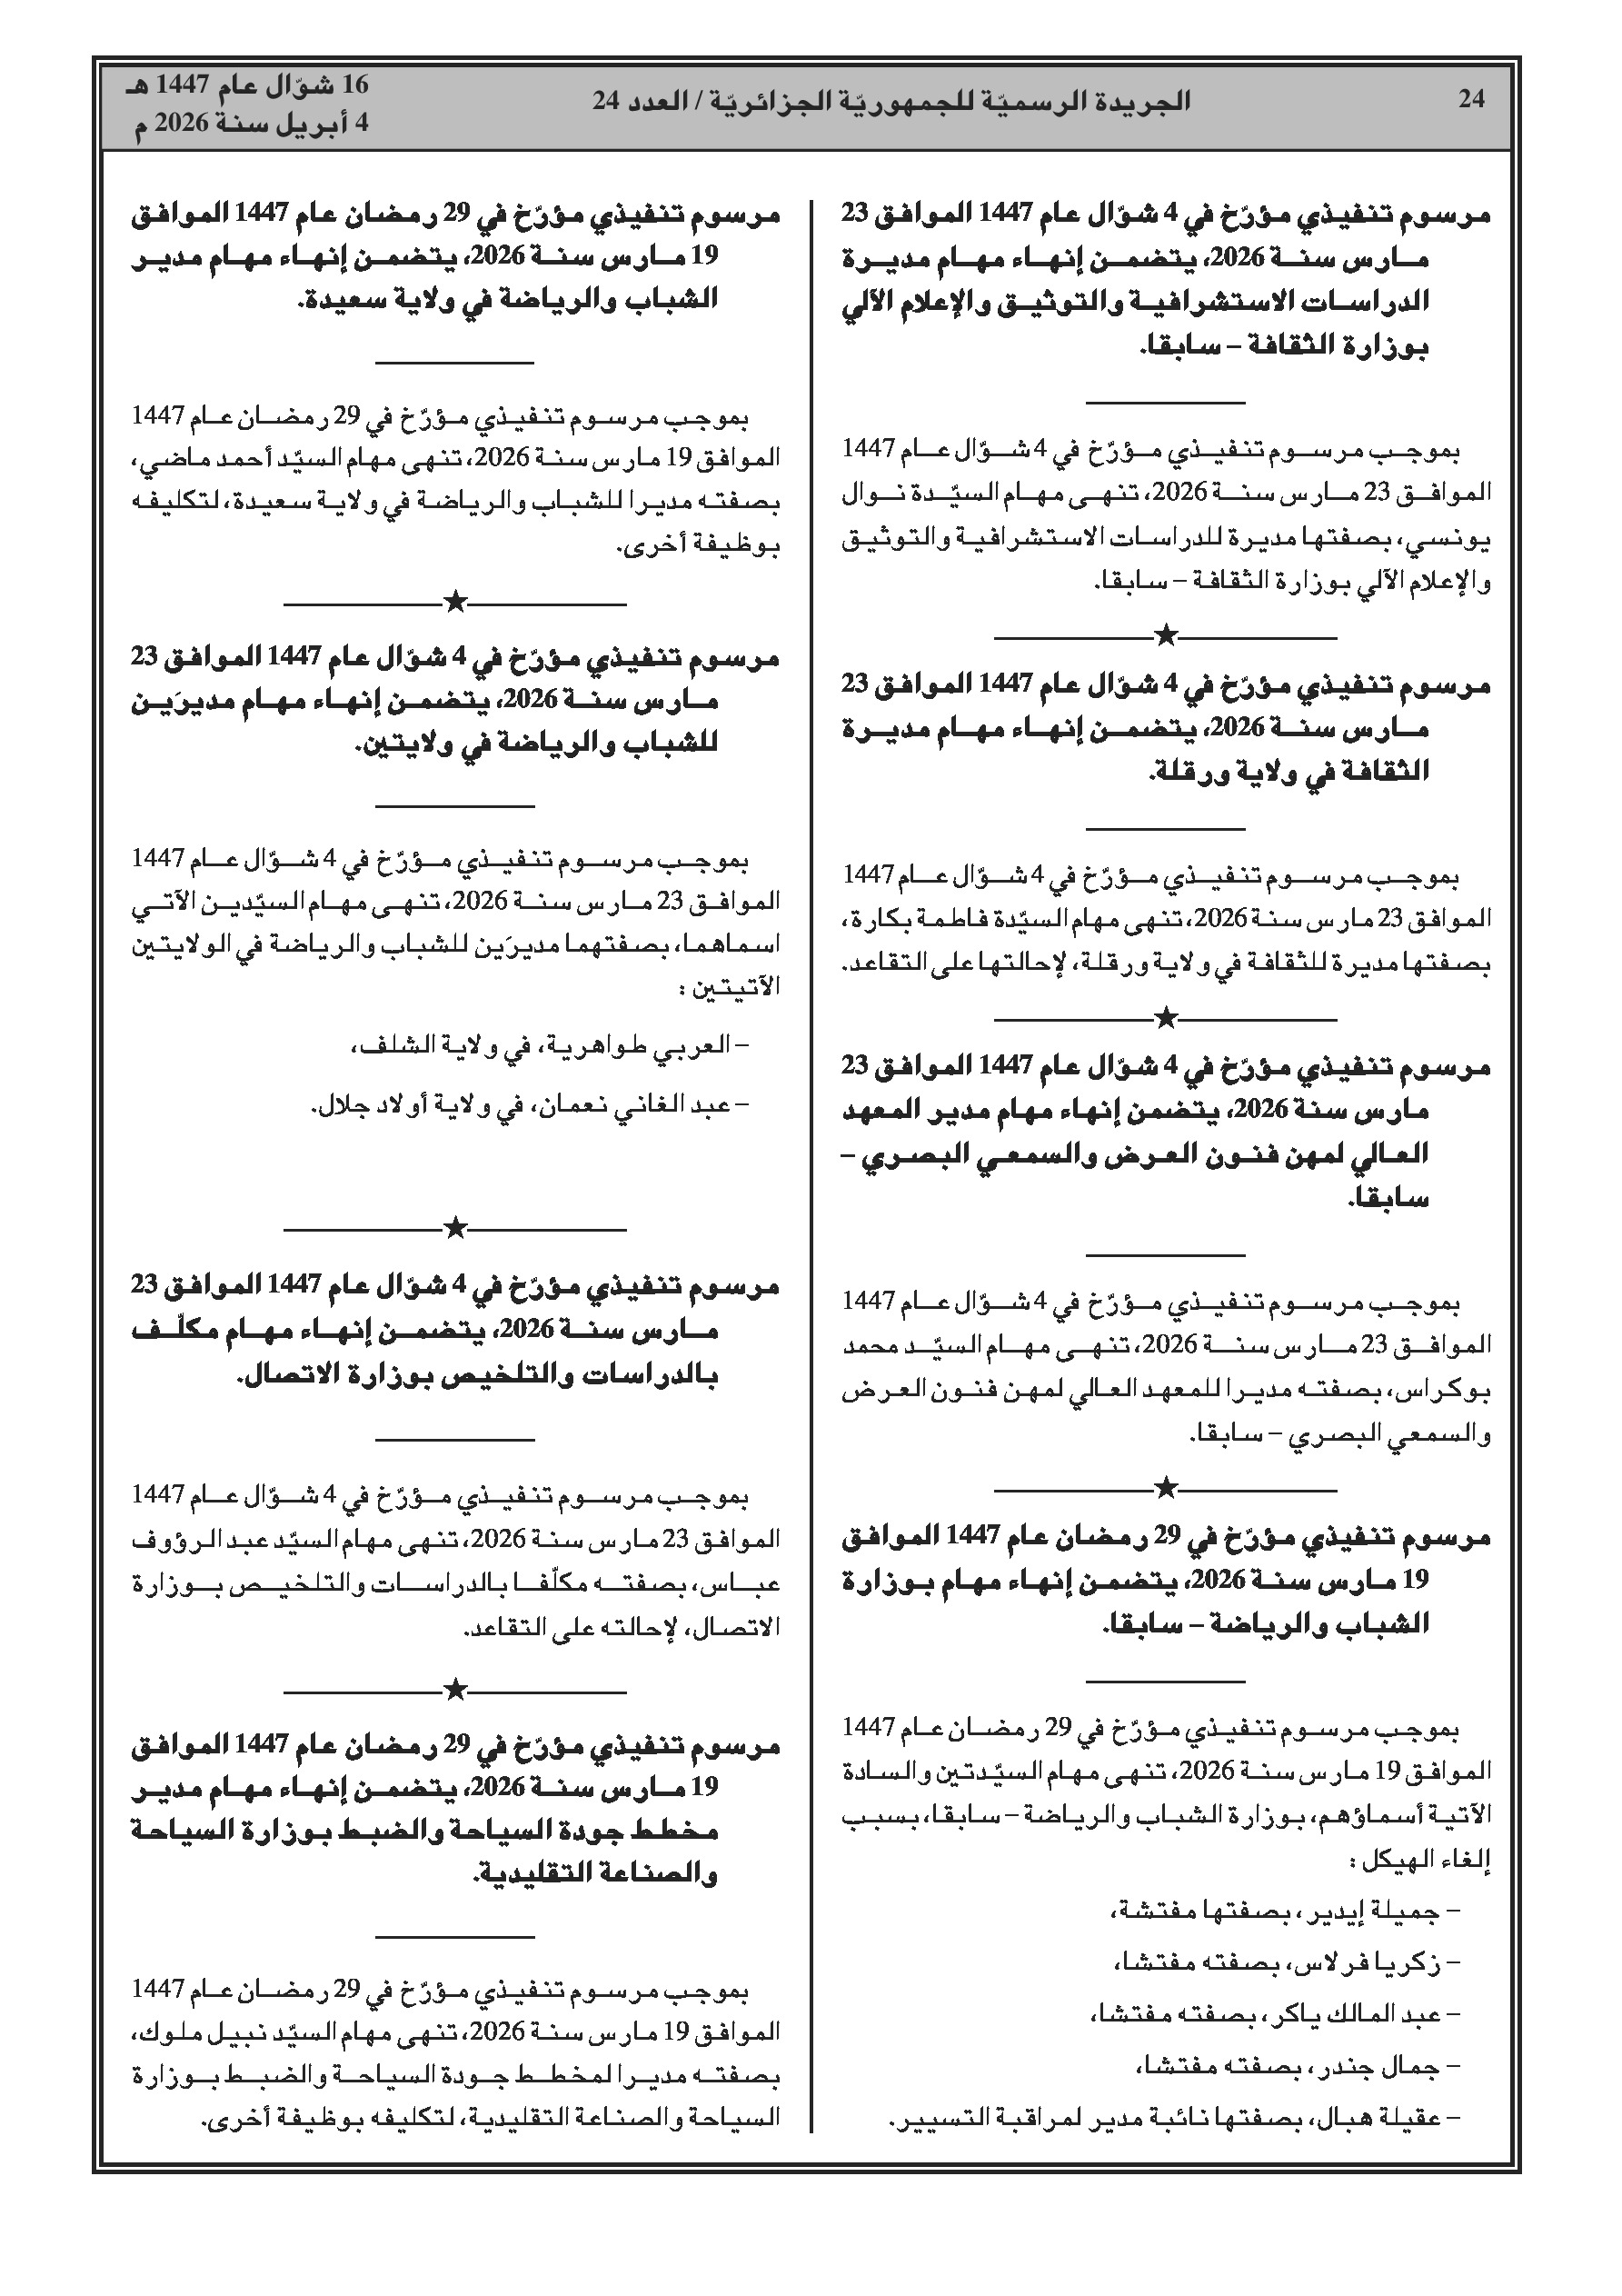 24
الجريدة الرسميّة للجمهوريّة الجزائريّة / العدد 24
16 شوّال عام 1447 هـ
4 أبريل سنة 2026 م
مرسوم تنفيذي مؤرّخ في 4 شوّال عام 1447 الموافق 23
مارس سنة 2026، يتضمن إنهاء مهام مديرة
الدراسات الاستشرافية والتوثيق والإعلام الآلي
بوزارة الثقافة – سابقا.
بموجب مرسوم تنفيذي مؤرّخ في 4 شوّال عام 1447
الموافق 23 مارس سنة 2026، تنهى مهام السيّدة نوال
يونسي، بصفتها مديرة للدراسات الاستشرافية والتوثيق
والإعلام الآلي بوزارة الثقافة – سابقا.
مرسوم تنفيذي مؤرّخ في 4 شوّال عام 1447 الموافق 23
مارس سنة 2026، يتضمن إنهاء مهام مديرة
الثقافة في ولاية ورقلة.
بموجب مرسوم تنفيذي مؤرّخ في 4 شوّال عام 1447
الموافق 23 مارس سنة 2026، تنهى مهام السيّدة فاطمة بكارة،
بصفتها مديرة للثقافة في ولاية ورقلة، لإحالتها على التقاعد.
مرسوم تنفيذي مؤرّخ في 4 شوّال عام 1447 الموافق 23
مارس سنة 2026، يتضمن إنهاء مهام مدير المعهد
العالي لمهن فنون العرض والسمعي البصري –
سابقا.
بموجب مرسوم تنفيذي مؤرّخ في 4 شوّال عام 1447
الموافق 23 مارس سنة 2026، تنهى مهام السيّد محمد
بوكراس، بصفته مديرا للمعهد العالي لمهن فنون العرض
والسمعي البصري – سابقا.
مرسوم تنفيذي مؤرّخ في 29 رمضان عام 1447 الموافق
19 مارس سنة 2026، يتضمن إنهاء مهام بوزارة
الشباب والرياضة – سابقا.
بموجب مرسوم تنفيذي مؤرّخ في 29 رمضان عام 1447
الموافق 19 مارس سنة 2026، تنهى مهام السيّدتين والسادة
الآتية أسماؤهم، بوزارة الشباب والرياضة – سابقا، بسبب
إلغاء الهيكل :
– جميلة إيدير، بصفتها مفتشة،
– زكريا فرلاس، بصفته مفتشا،
– عبد المالك ياكر، بصفته مفتشا،
– جمال جندر، بصفته مفتشا،
– عقيلة هبال، بصفتها نائبة مدير لمراقبة التسيير.
مرسوم تنفيذي مؤرّخ في 29 رمضان عام 1447 الموافق
19 مارس سنة 2026، يتضمن إنهاء مهام مدير
الشباب والرياضة في ولاية سعيدة.
بموجب مرسوم تنفيذي مؤرّخ في 29 رمضان عام 1447
الموافق 19 مارس سنة 2026، تنهى مهام السيّد أحمد ماضي،
بصفته مديرا للشباب والرياضة في ولاية سعيدة، لتكليفه
بوظيفة أخرى.
مرسوم تنفيذي مؤرّخ في 4 شوّال عام 1447 الموافق 23
مارس سنة 2026، يتضمن إنهاء مهام مديرَين
للشباب والرياضة في ولايتين.
بموجب مرسوم تنفيذي مؤرّخ في 4 شوّال عام 1447
الموافق 23 مارس سنة 2026، تنهى مهام السيّدين الآتي
اسماهما، بصفتهما مديرَين للشباب والرياضة في الولايتين
الآتيتين :
– العربي طواهرية، في ولاية الشلف،
– عبد الغاني نعمان، في ولاية أولاد جلال.
مرسوم تنفيذي مؤرّخ في 4 شوّال عام 1447 الموافق 23
مارس سنة 2026، يتضمن إنهاء مهام مكلّف
بالدراسات والتلخيص بوزارة الاتصال.
بموجب مرسوم تنفيذي مؤرّخ في 4 شوّال عام 1447
الموافق 23 مارس سنة 2026، تنهى مهام السيّد عبد الرؤوف
عباس، بصفته مكلّفا بالدراسات والتلخيص بوزارة
الاتصال، لإحالته على التقاعد.
مرسوم تنفيذي مؤرّخ في 29 رمضان عام 1447 الموافق
19 مارس سنة 2026، يتضمن إنهاء مهام مدير
مخطط جودة السياحة والضبط بوزارة السياحة
والصناعة التقليدية.
بموجب مرسوم تنفيذي مؤرّخ في 29 رمضان عام 1447
الموافق 19 مارس سنة 2026، تنهى مهام السيّد نبيل ملوك،
بصفته مديرا لمخطط جودة السياحة والضبط بوزارة
السياحة والصناعة التقليدية، لتكليفه بوظيفة أخرى.